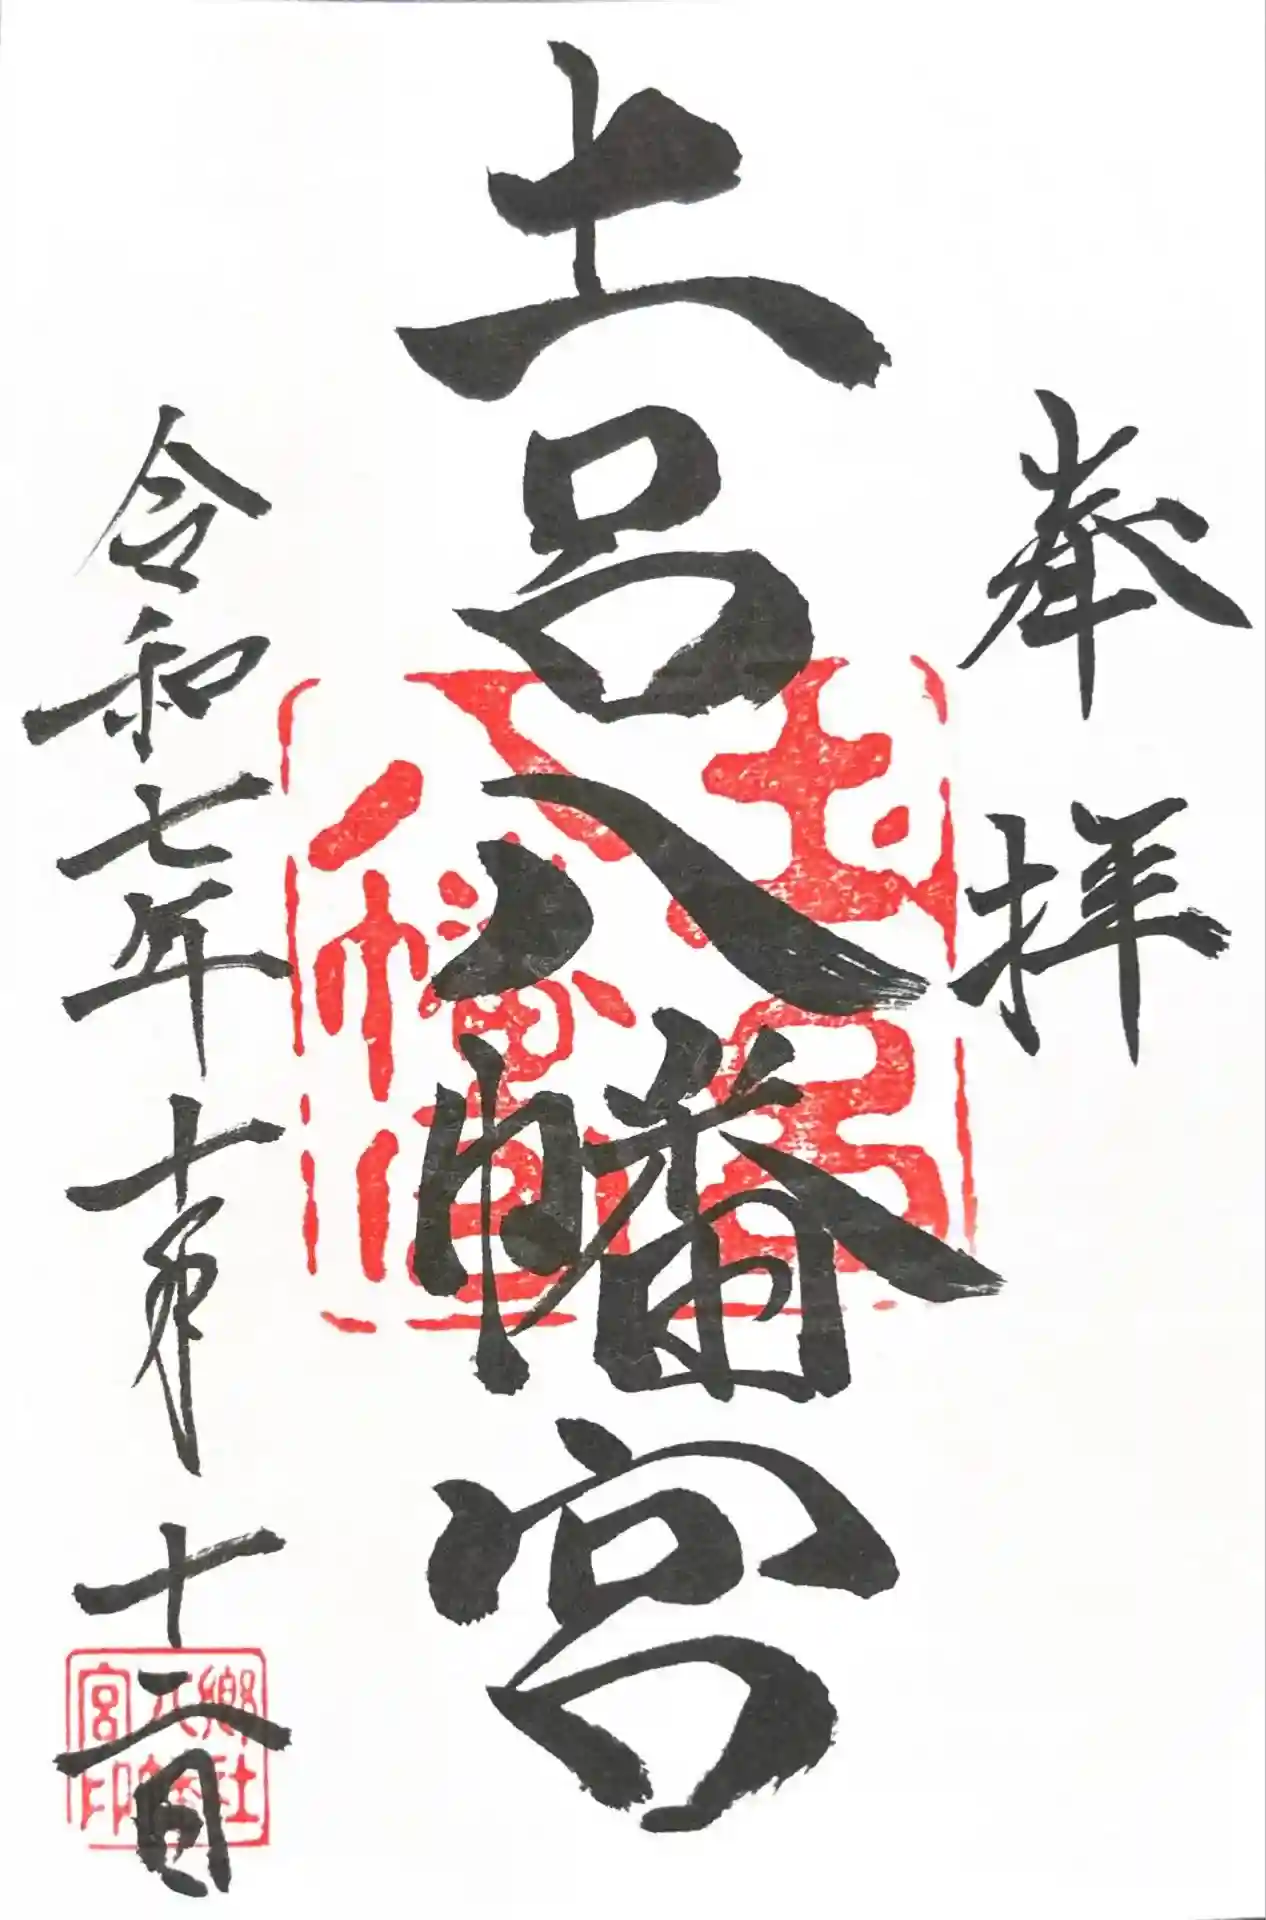 奉拝
土呂八幡宮
令和七年十月十二日
土呂
八幡宮
郷社
八幡
宮印